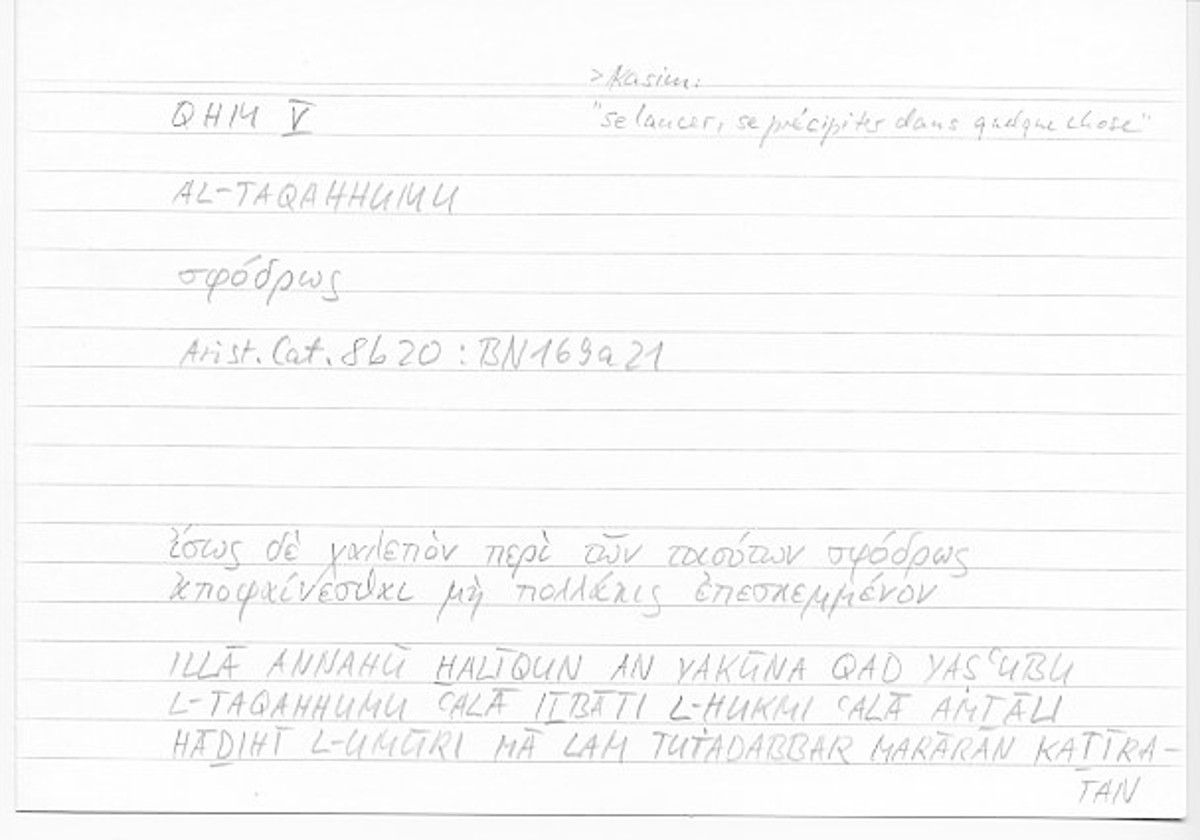 > Kasim:
QHM V "se lancer, se précipiter dans quelque chose"
AL-TAQAHHUMU
σφόδρως
Arist. Cat. 8b20 : BN169a21
ἴσως δὲ χαλεπὸν περὶ τῶν τοιούτων σφόδρως
ἀποφαίνεσθαι μὴ πολλάκις ἐπεσκεμμένον
ILLĀ ANNAHŪ ḪALĪQUN AN YAKŪNA QAD YAṢʿUBU
L-TAQAHHUMU ʿALĀ IṮBĀTI L-HUKMI ʿALĀ AMṮĀLI
HĀḎIHĪ L-UMŪRI MĀ LAM TUTADABBAR MARĀRAN KAṮĪRA-
TAN